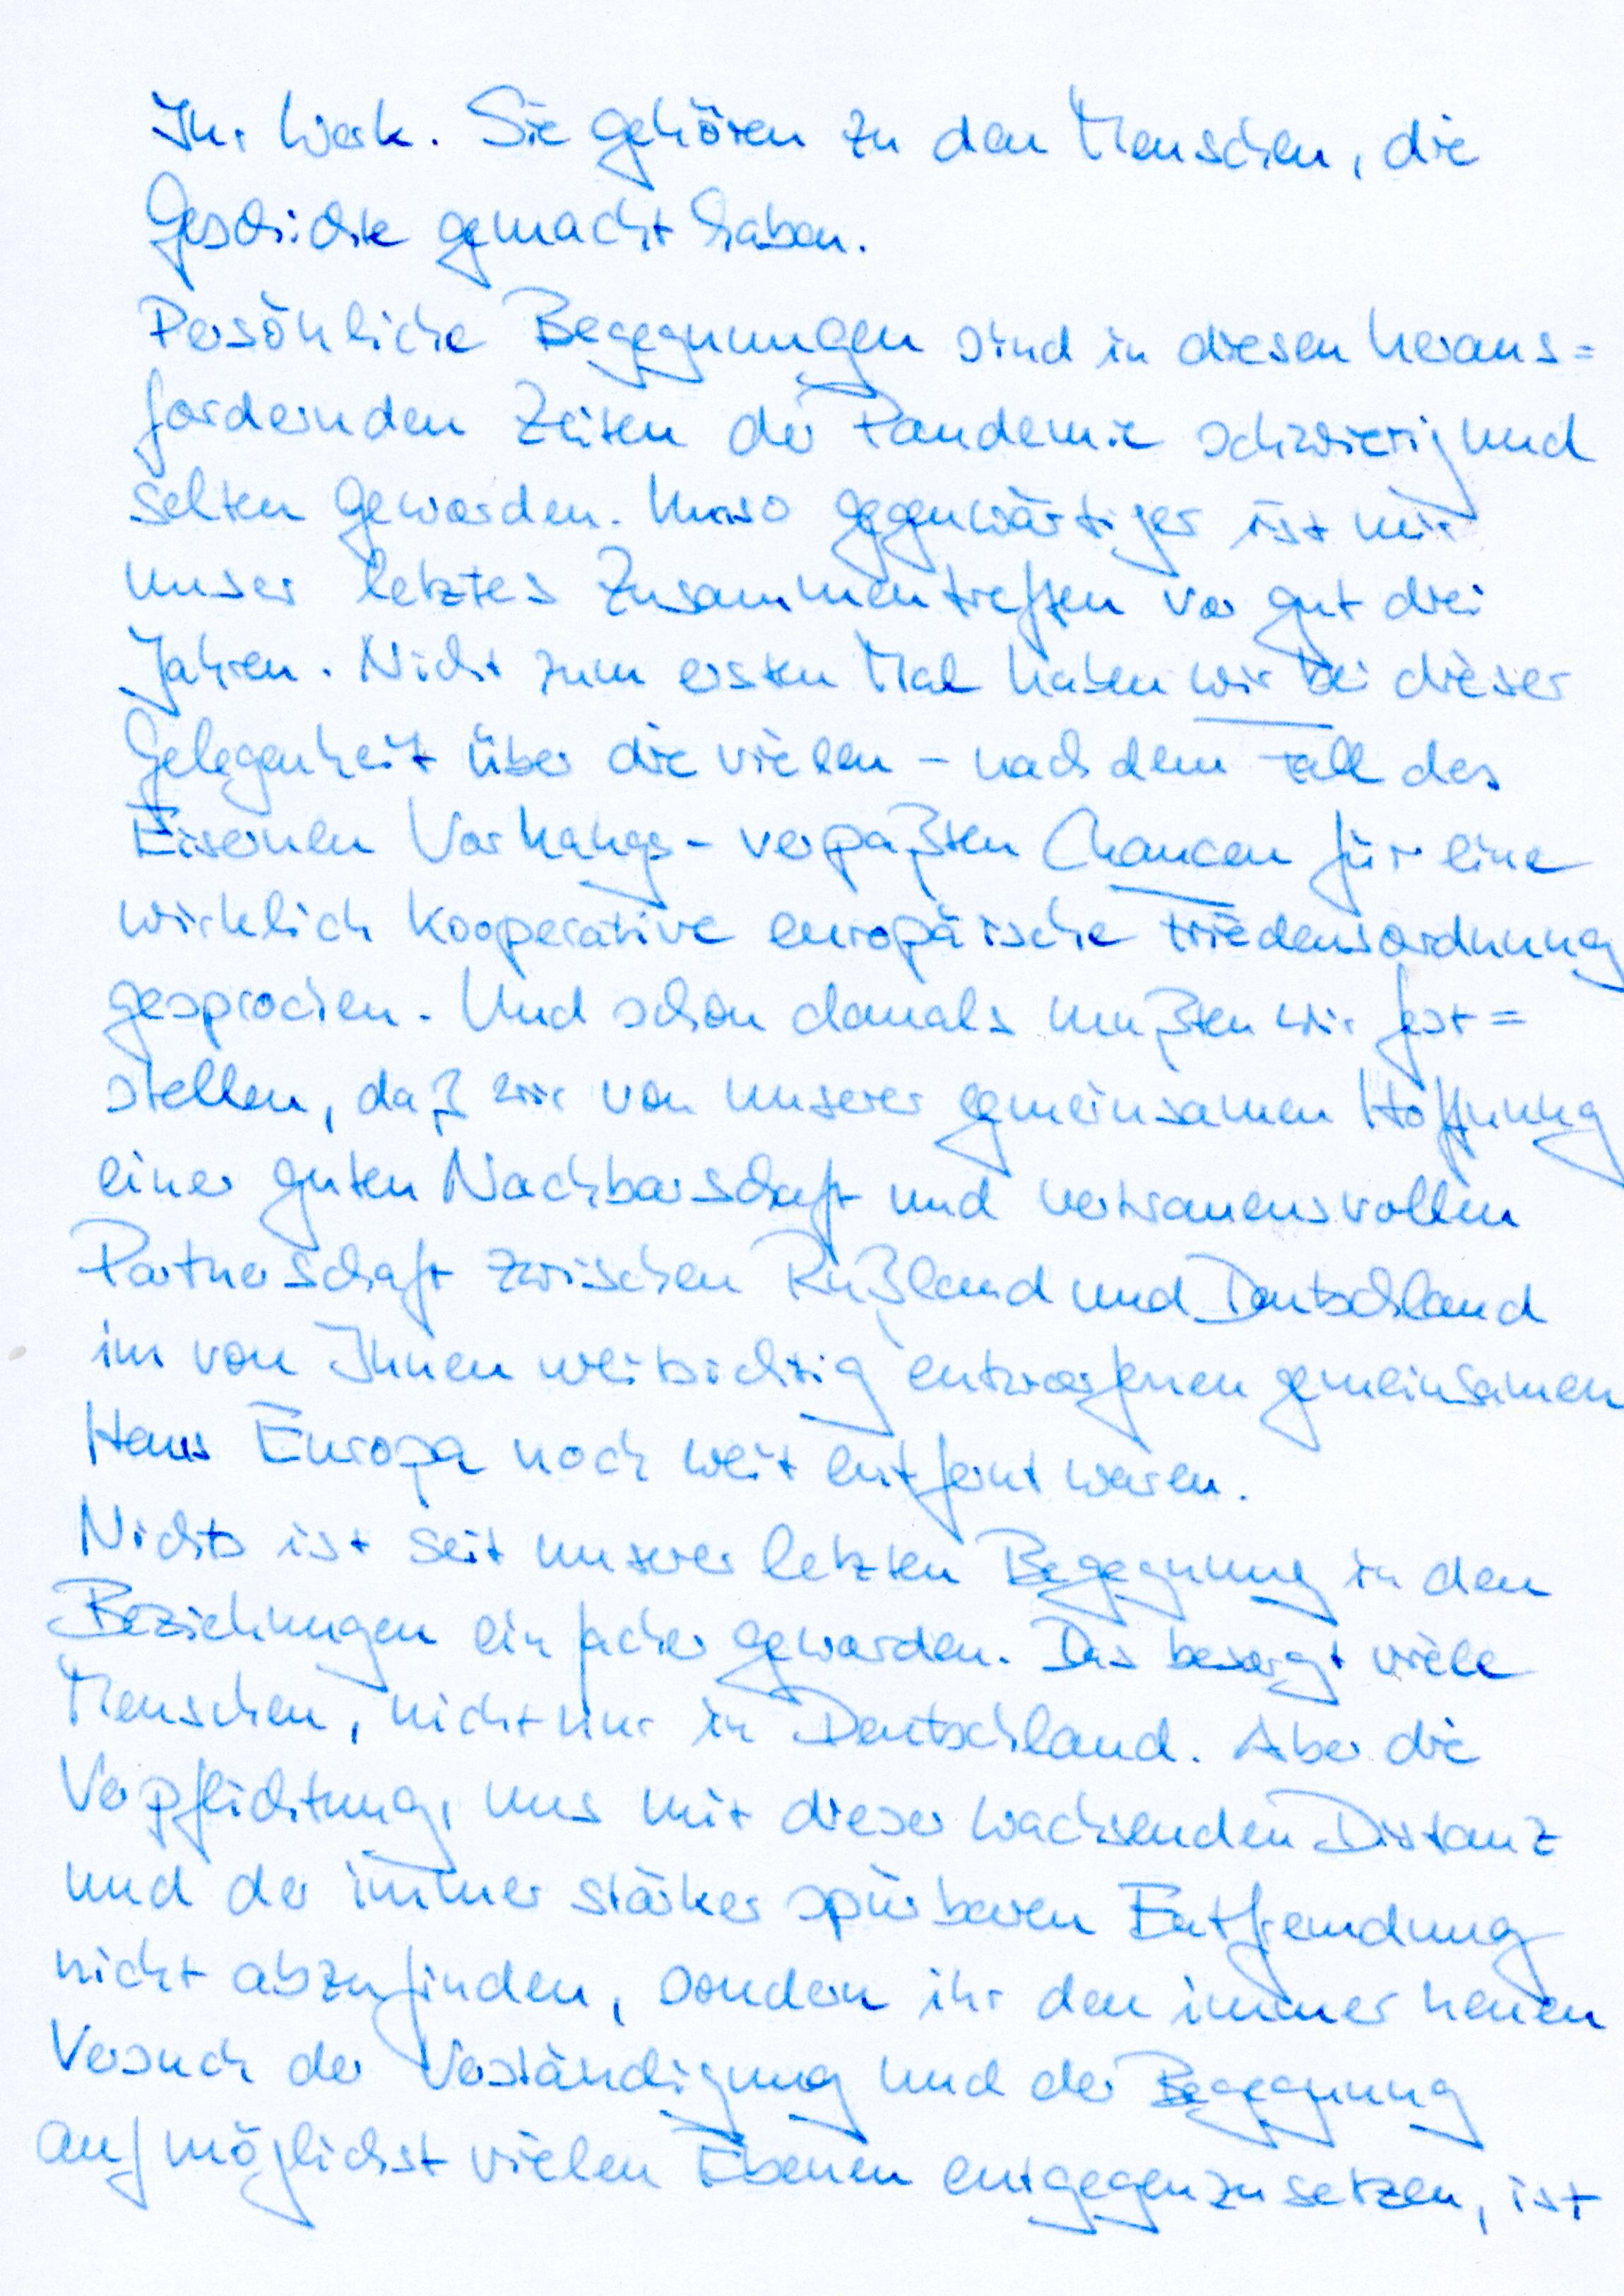 Ihr Werk. Sie gehören zu den Menschen, die
Geschichte gemacht haben.
Persönliche Begegnungen sind in diesen heraus=
fordernden Zeiten der Pandemie schwierig und
selten geworden. Umso gegenwärtiger ist mir
unser letztes Zusammentreffen vor gut drei
Jahren. Nicht zum ersten Mal haben wir bei dieser
Gelegenheit über die vielen – nach dem Fall des
Eisernen Vorhangs – verpaßten Chancen für eine
wirklich kooperative europäische Friedensordnung
gesprochen. Und schon damals mußten wir fest=
stellen, daß wir von unserer gemeinsamen Hoffnung
einer guten Nachbarschaft und vertrauensvollen
Partnerschaft zwischen Rußland und Deutschland
im von Ihnen weitsichtig entworfenen gemeinsamen
Haus Europa noch weit entfernt waren.
Nichts ist seit unserer letzten Begegnung in den
Beziehungen einfacher geworden. Das besorgt viele
Menschen, nicht nur in Deutschland. Aber die
Verpflichtung, uns mit dieser wachsenden Distanz
und der immer stärker spürbaren Entfremdung
nicht abzufinden, sondern ihr den immer neuen
Versuch der Verständigung und der Begegnung
auf möglichst vielen Ebenen entgegenzusetzen, ist